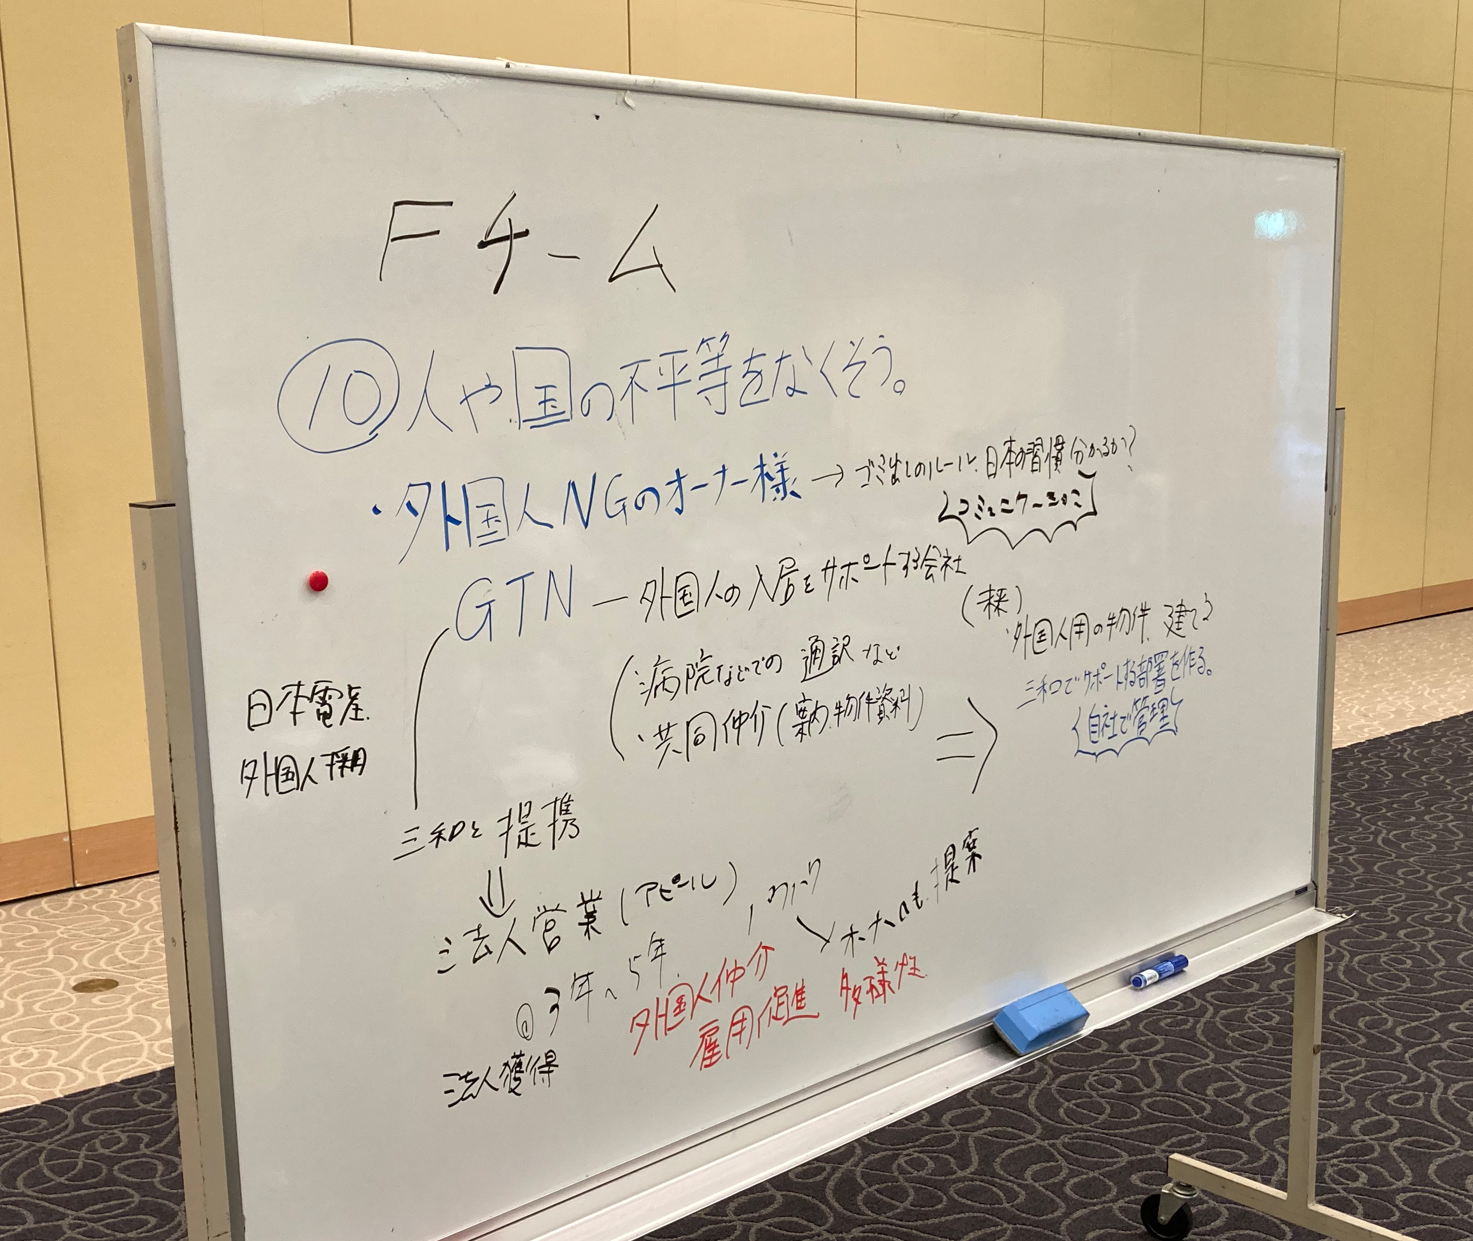 Fチーム
⑩人や国の不平等をなくそう。
・外国人NGのオーナー様→ゴミ出しのルール、日本の習慣分かるか?
コミュニケーション
GTN―外国人の入居をサポートする会社
(・病院などでの通訳など
・共同仲介(案内、物件資料)
⇒
(未来)
・外国人用の物件、建てる
三和でサポートする部署を作る。
自社で管理
日本電産
外国人採用
三和と提携
⇓
法人営業(アピール)
→オーナーにも提案
◎3年、5年
法人獲得
外国人仲介
雇用促進 多様性